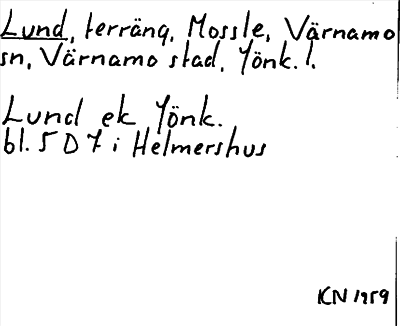 Lund, terräng, Mossle, Värnamo
sn, Värnamo stad, Jönk. l.
Lund ek Jönk.
bl. 5 D 7 i Helmershus
KN 1959